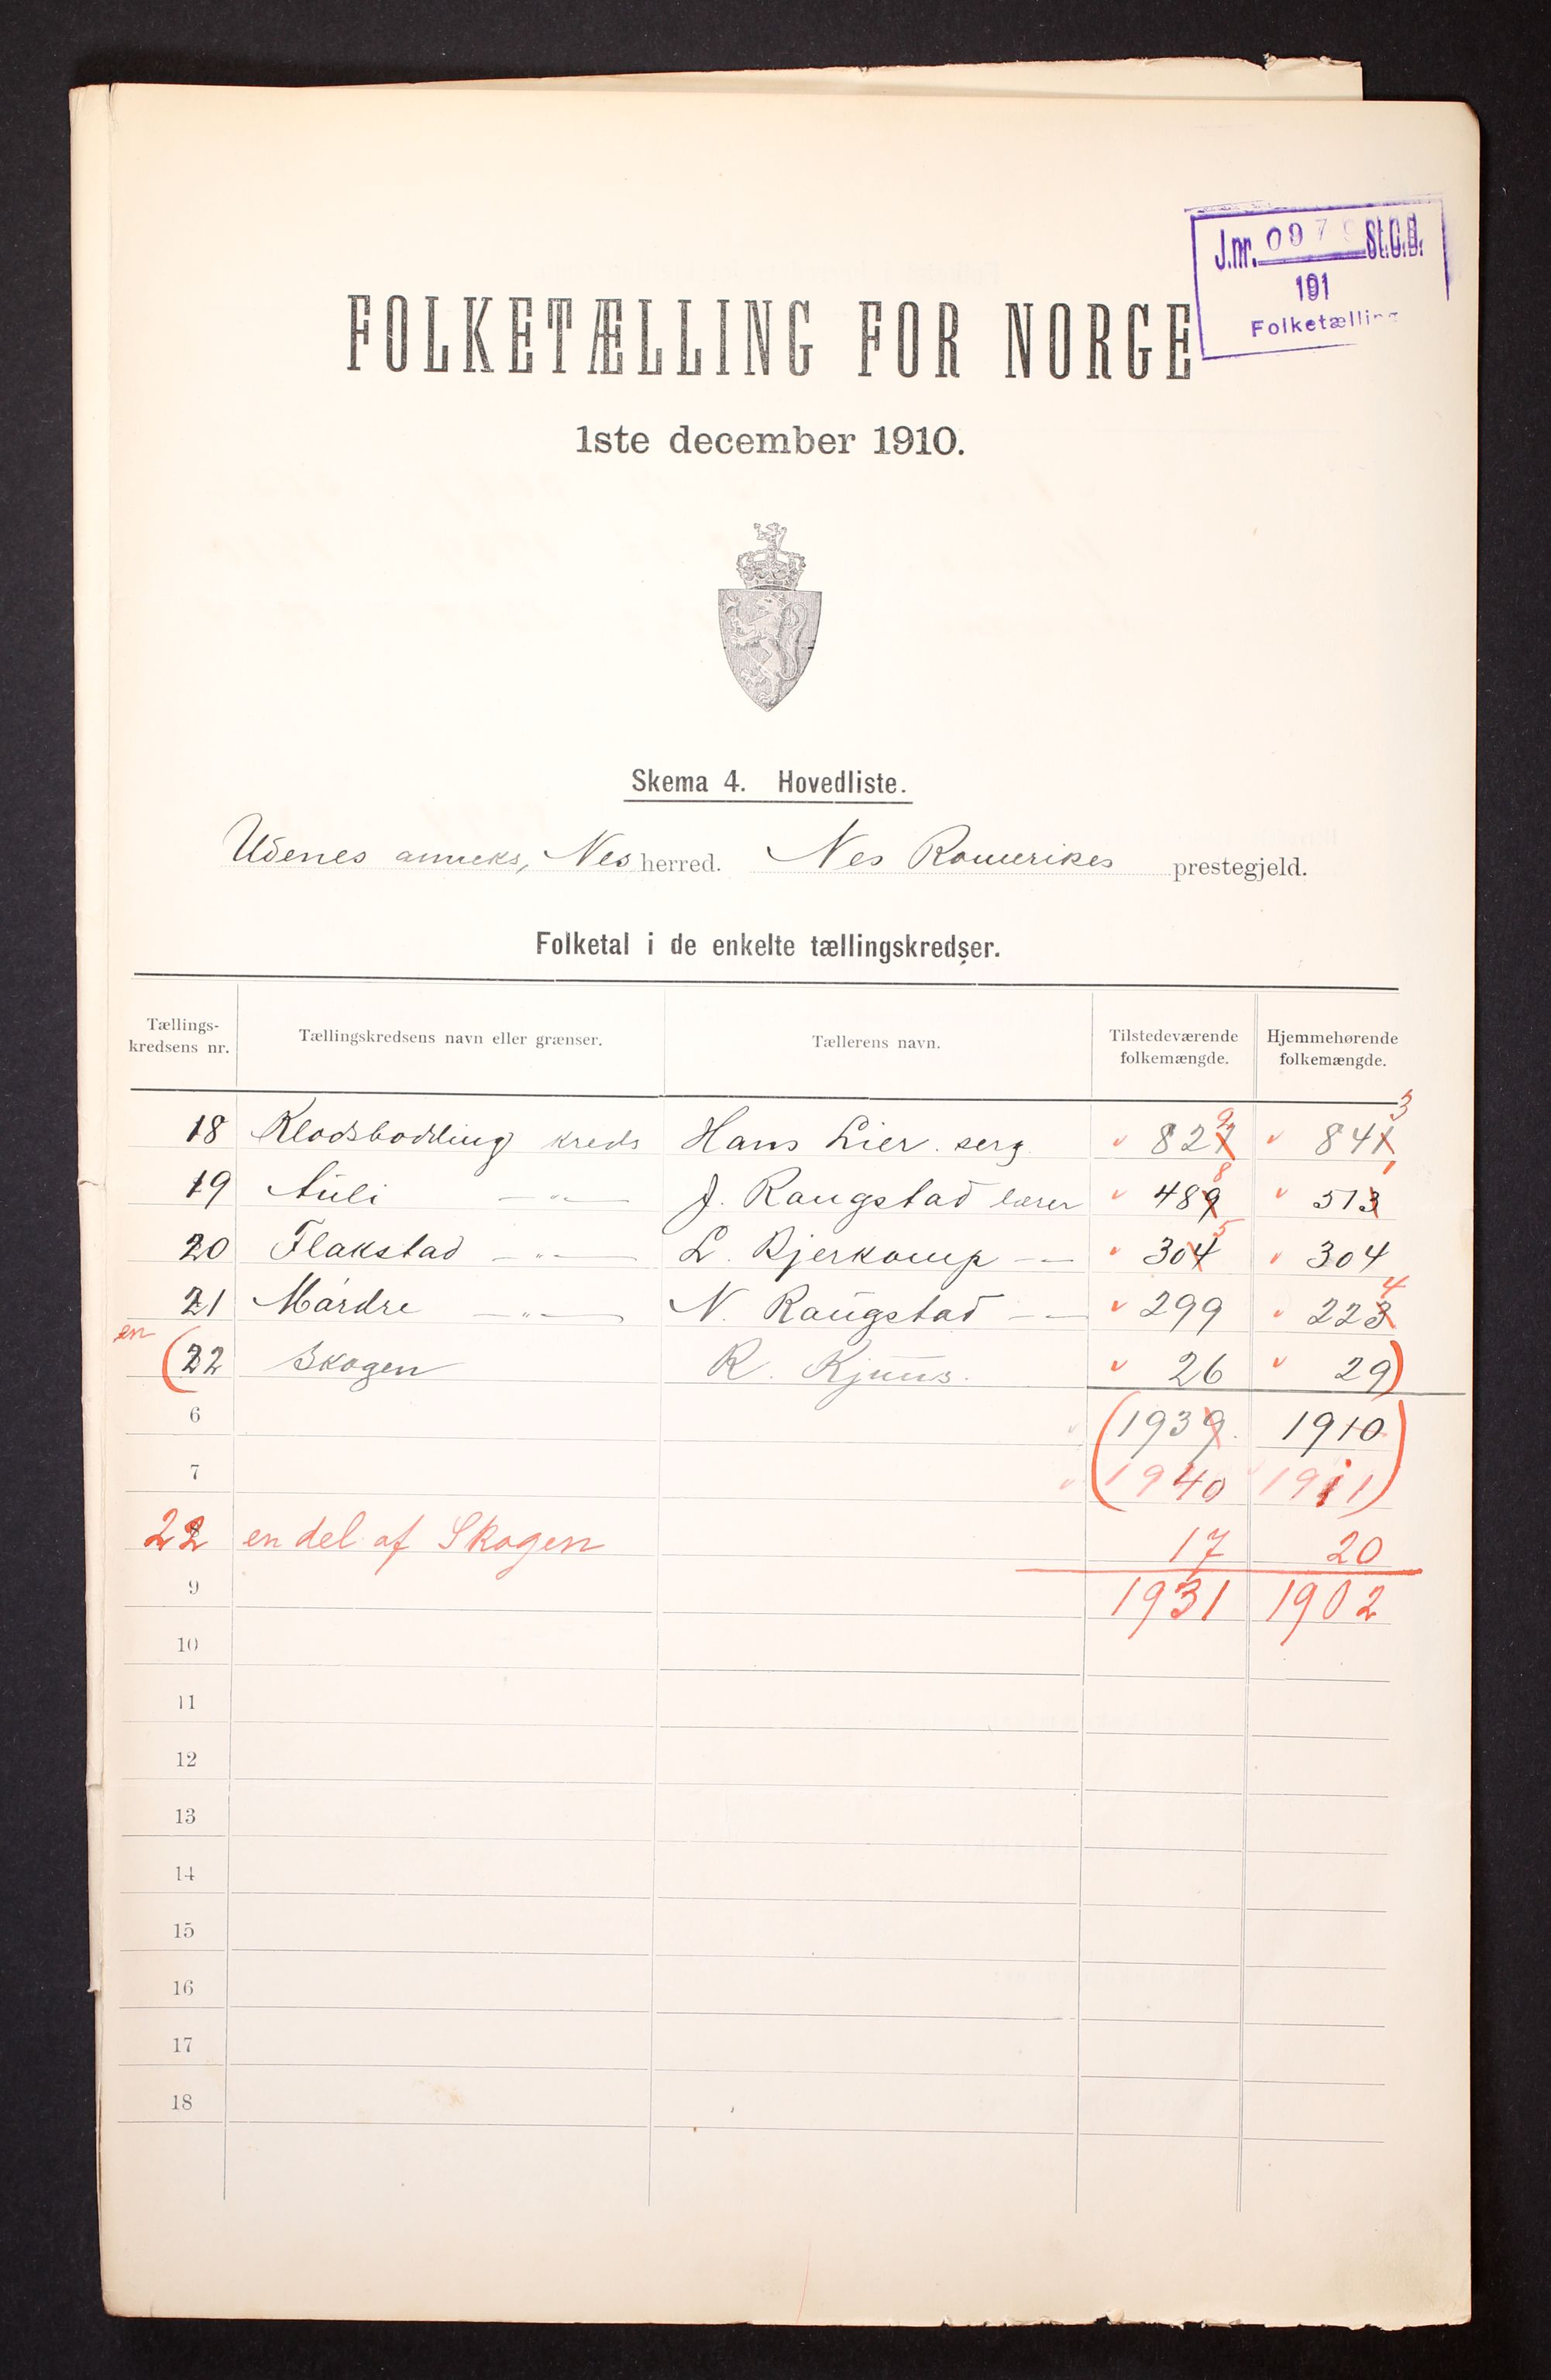 J.nr. 097 St.C.B.
191
Folketælling
FOLKETÆLLING FOR NORGE
1ste december 1910.
Skema 4. Hovedliste.
Udenes anneks, Nes herred. Nes Romerikes prestegjeld.
Folketal i de enkelte tællingskredser.
Tællings-kredsens nr. Tællingskredsens navn eller grænser. Tællerens navn. Tilstedeværende folkemængde. Hjemmehørende folkemængde.
18 Klodsbodding kreds Hans Lier. serg. 827 9 841 3
19 Auli —"— J. Raugstad lærer 489 8 513 1
20 Flakstad —"— L. Bjerkomp —"— 304 5 304
21 Mårdre —"— N. Raugstad —"— 299 223 4
en
(22 Skogen R. Kjuus. 26 29)
6 (1939. 1910)
7 (1940 1911)
22 en del af Skogen 17 20
9 1931 1902
10
11
12
13
14
15
16
17
18